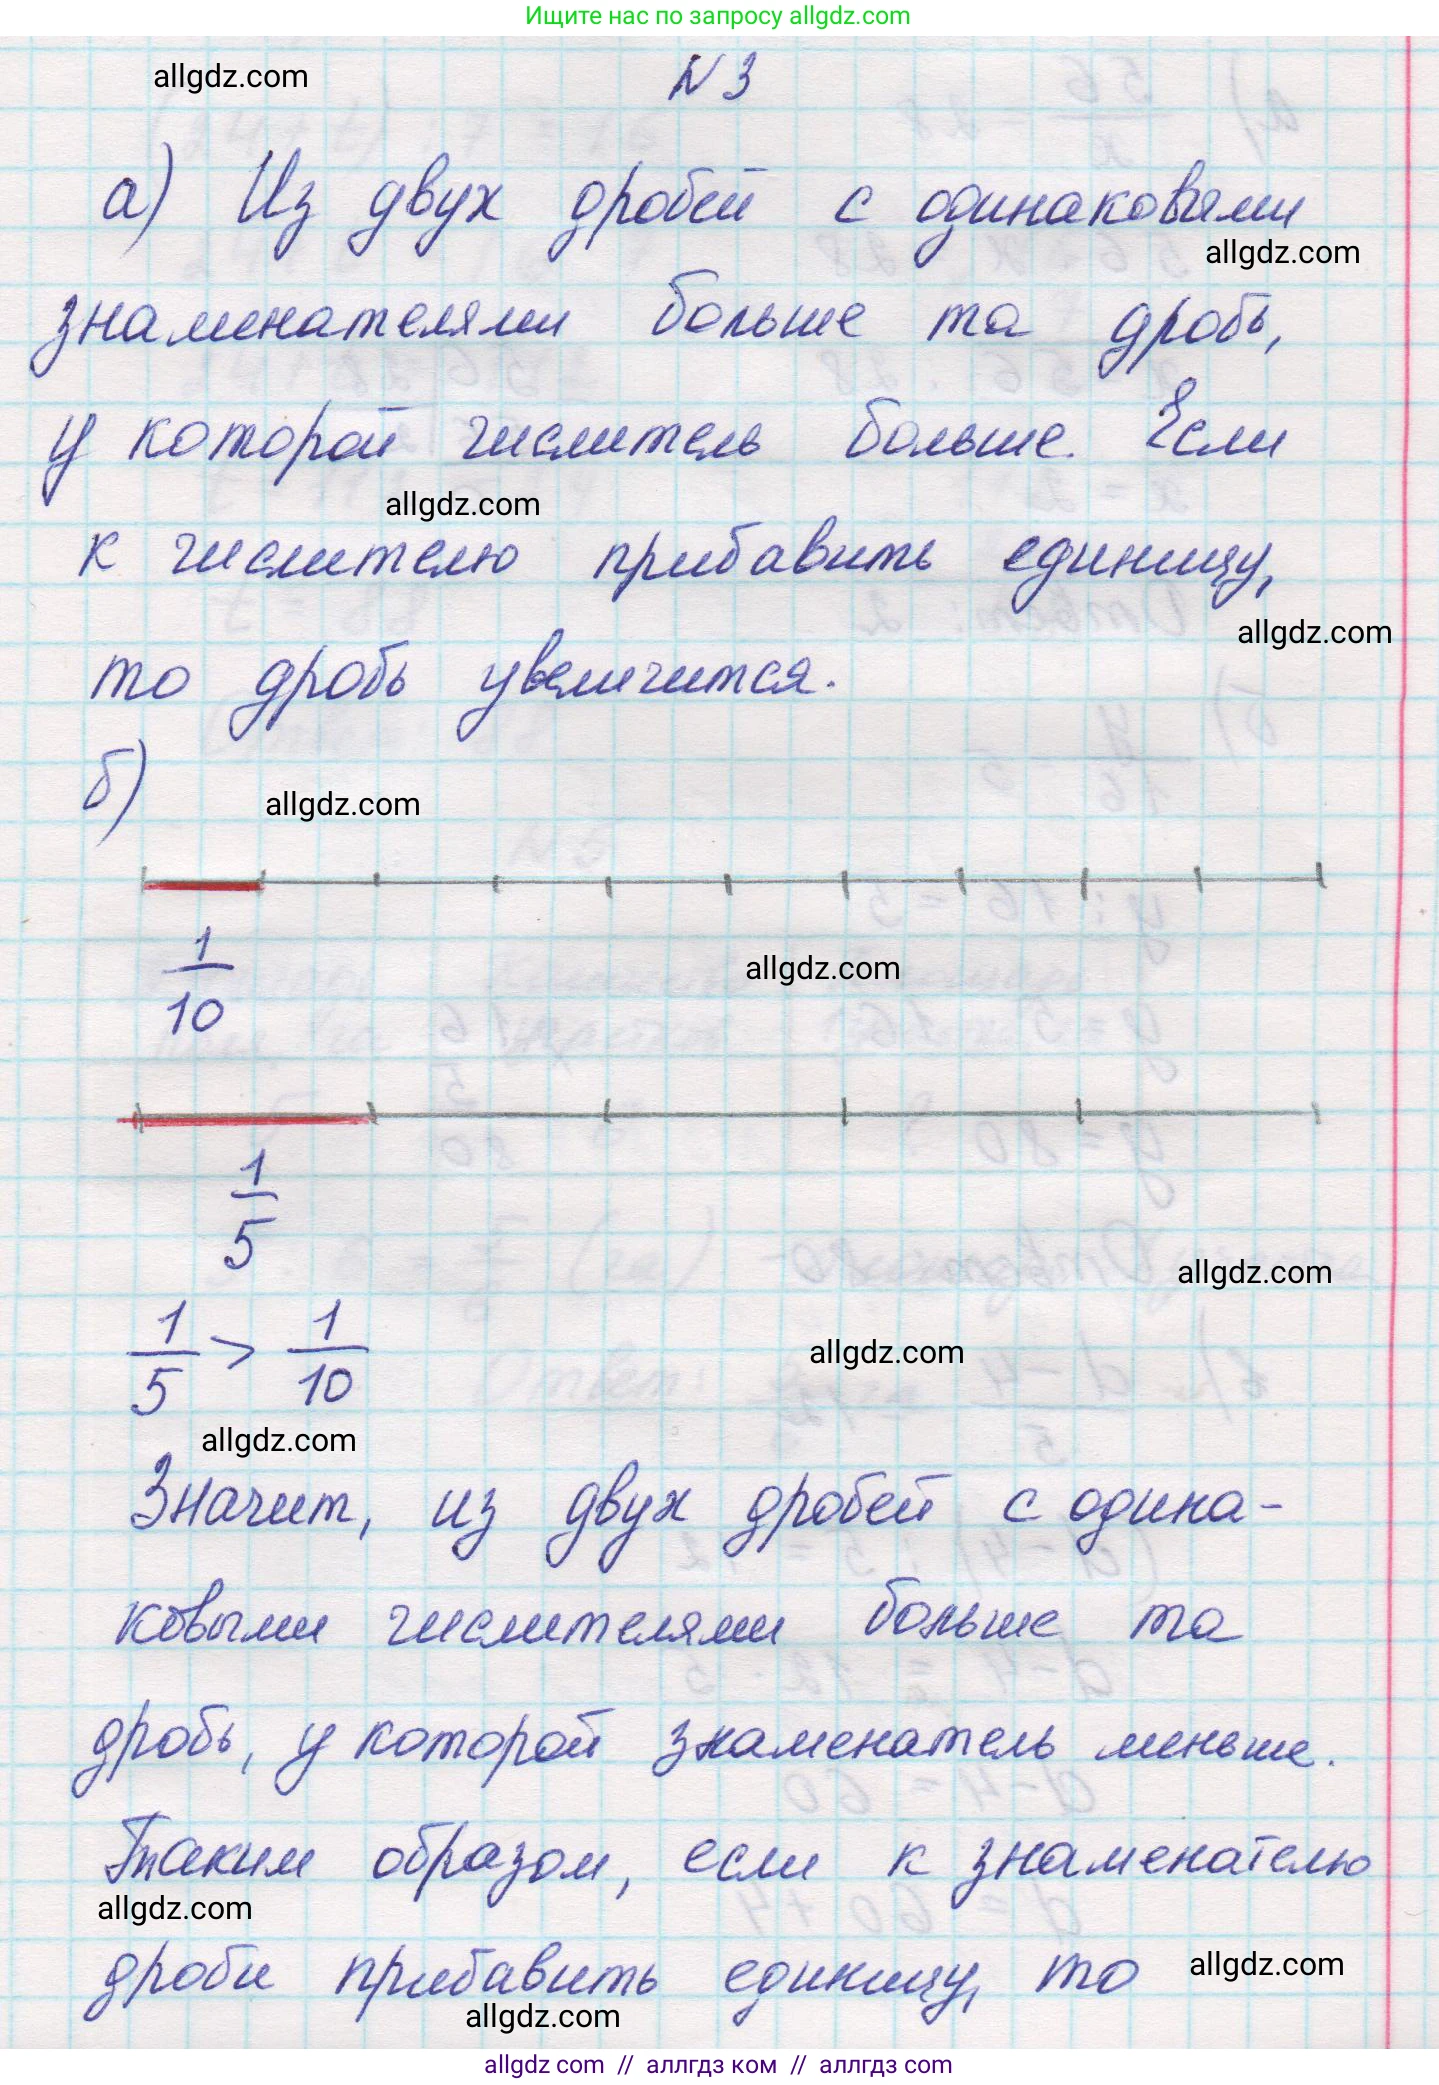 Ищите нас по запросу allgdz.com
allgdz.com
N 3
а) Из двух дробей с одинаковыми
allgdz.com
знаменателями больше та дробь,
у которой числитель больше. Если
allgdz.com
к числителю прибавить единицу,
allgdz.com
то дробь увеличится.
б)
allgdz.com
1
10
allgdz.com
1
5
allgdz.com
1/5 > 1/10
allgdz.com
allgdz.com
Значит, из двух дробей с одина-
ковыми числителями больше та
дробь, у которой знаменатель меньше.
Таким образом, если к знаменателю
allgdz.com
дроби прибавить единицу, то
allgdz.com
allgdz.com
allgdz com // аллгдз ком // аллгдз com